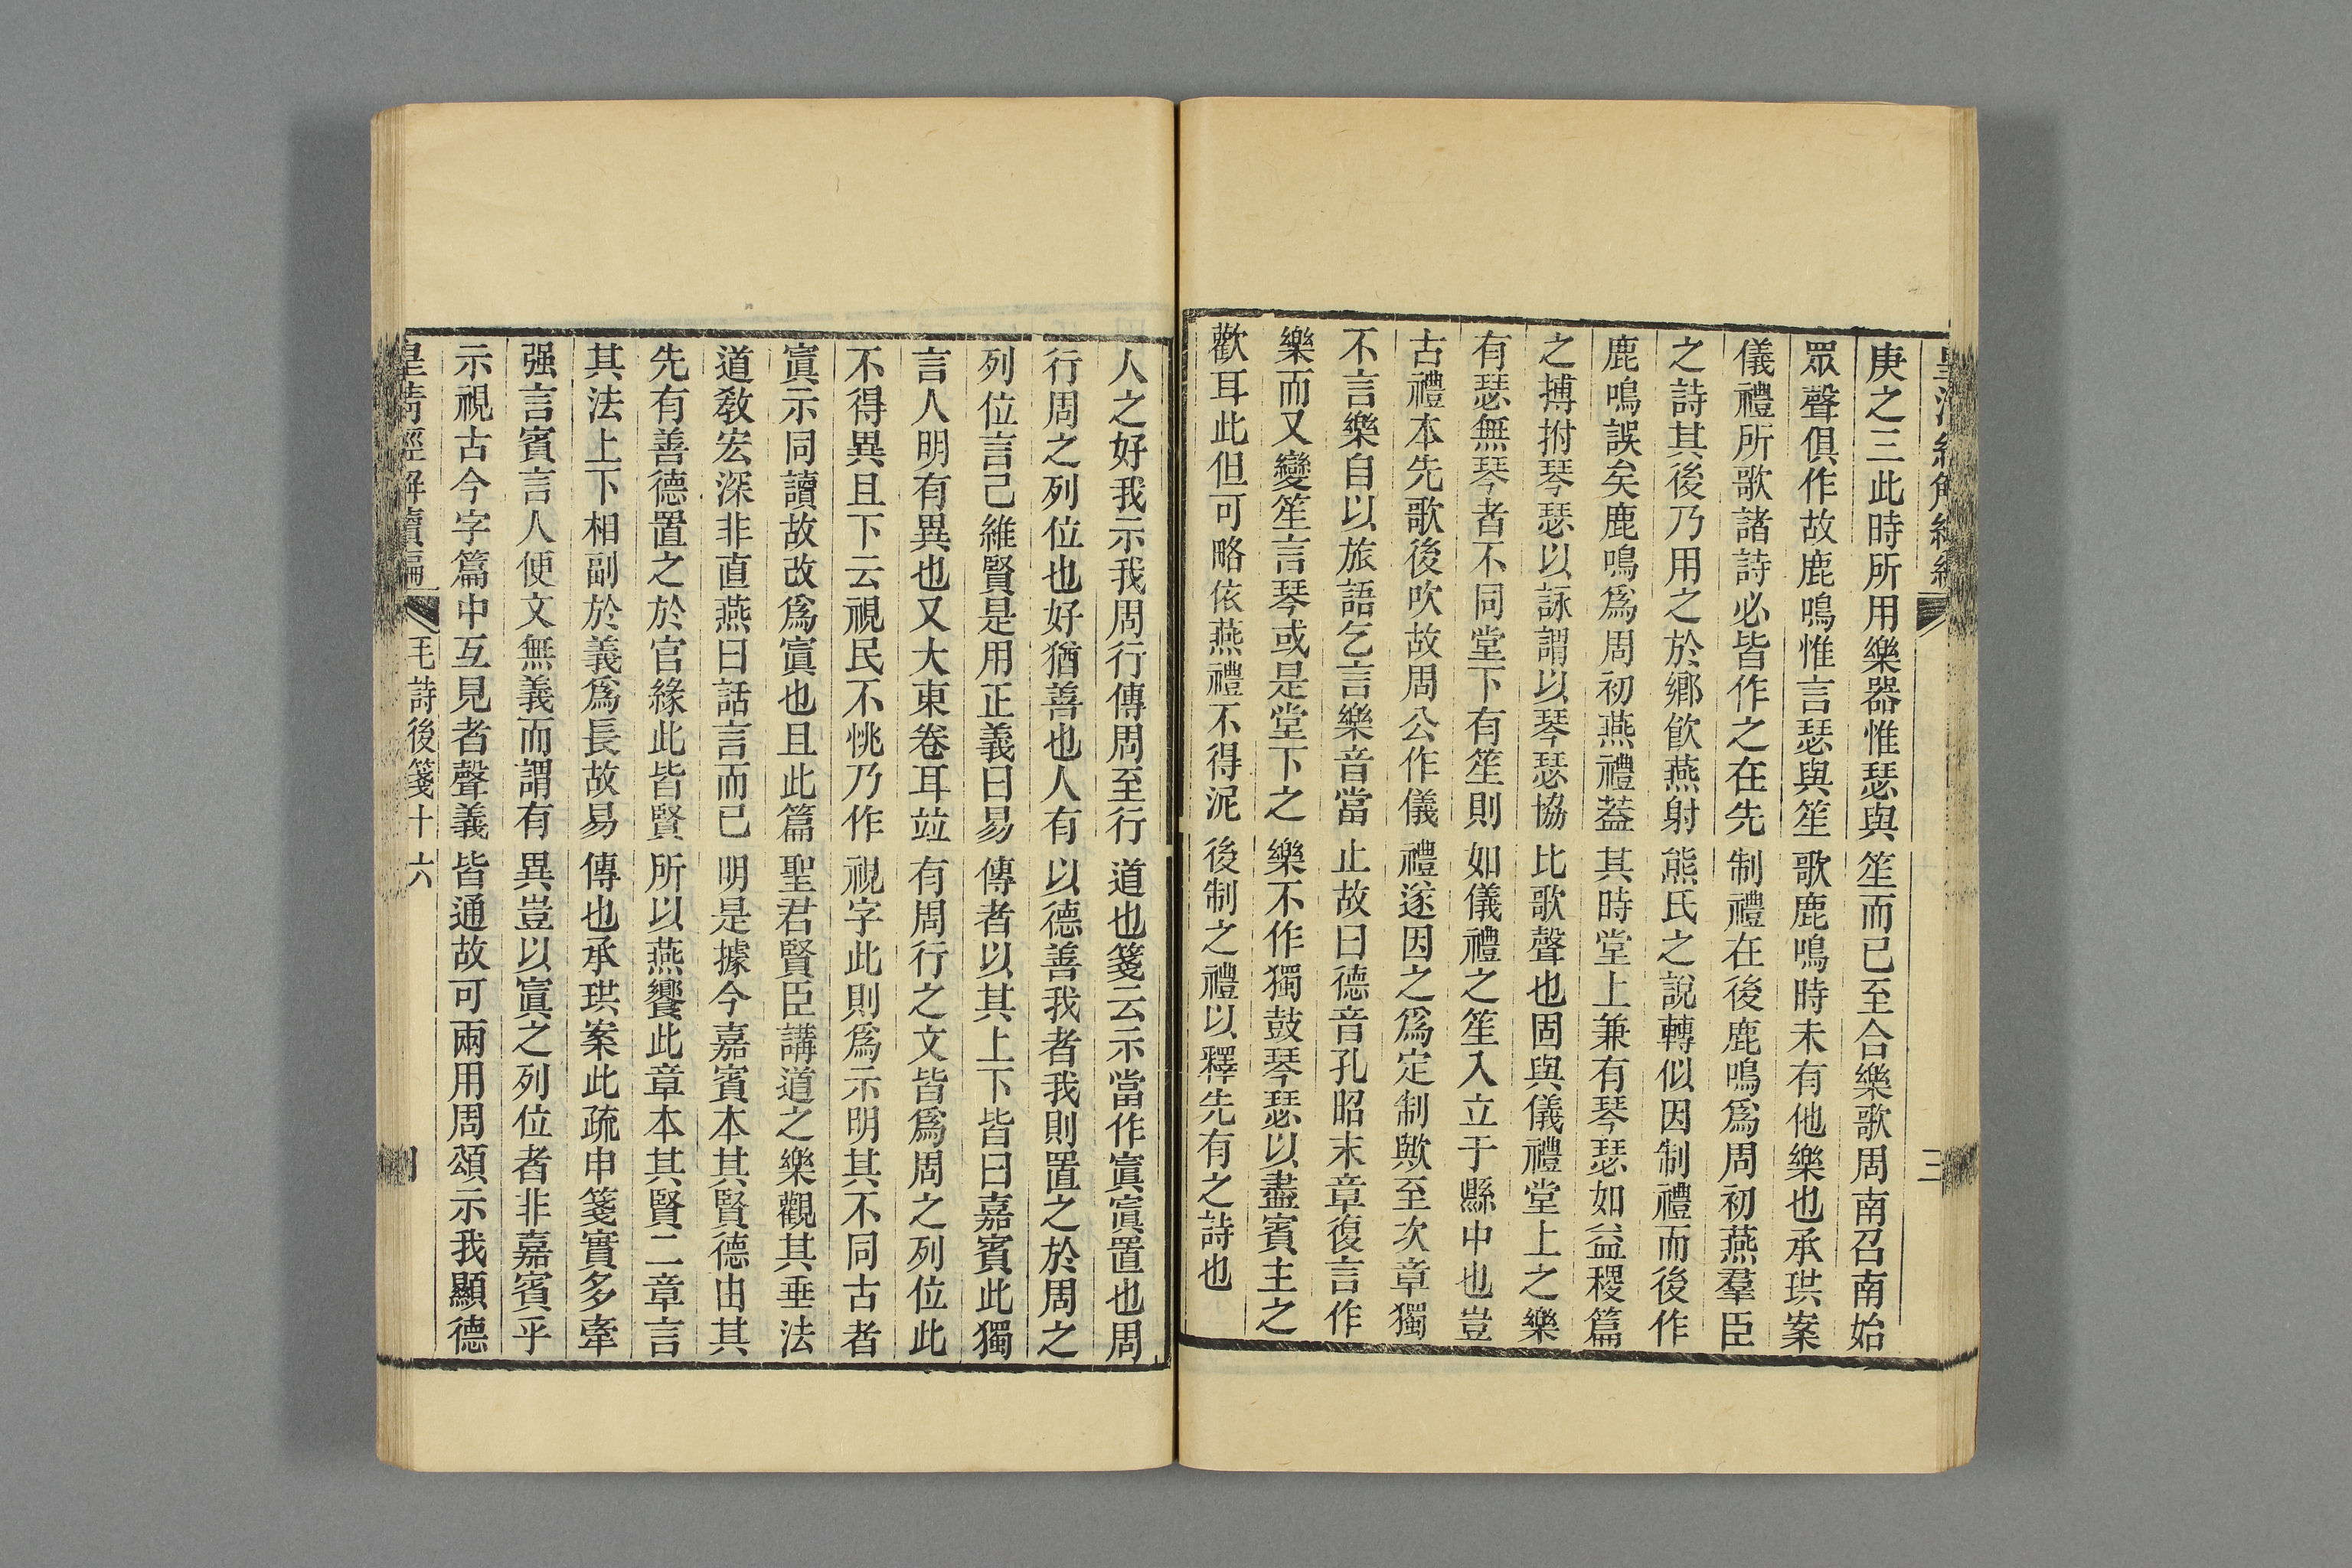 庚之三此時所用樂器惟瑟與笙而已至合樂歌周南召南始
眾聲俱作故鹿鳴惟言瑟與笙歌鹿鳴時未有他樂也承珙案
儀禮所歌諸詩必皆作之在先制禮在後鹿鳴爲周初燕羣臣
之詩其後乃用之於鄉飮燕射熊氏之說轉似因制禮而後作
鹿鳴誤矣鹿鳴爲周初燕禮葢其時堂上兼有琴瑟如益稷篇
之搏拊琴瑟以詠謂以琴瑟協比歌聲也固與儀禮堂上之樂
有瑟無琴者不同堂下有笙則如儀禮之笙入立于縣中也豈
古禮本先歌後吹故周公作儀禮遂因之爲定制歟至次章獨
不言樂自以旅語乞言樂音當止故曰德音孔昭末章復言作
樂而又變笙言琴或是堂下之樂不作獨鼓琴瑟以盡賓主之
歡耳此但可略依燕禮不得泥後制之禮以釋先有之詩也
人之好我示我周行傳周至行道也箋云示當作寘寘置也周
行周之列位也好猶善也人有以德善我者我則置之於周之
列位言己維賢是用正義曰易傳者以其上下皆曰嘉賓此獨
言人明有異也又大東卷耳竝有周行之文皆爲周之列位此
不得異且下云視民不恌乃作視字此則爲示明其不同古者
寘示同讀故改爲寘也且此篇聖君賢臣講道之樂觀其垂法
道敎宏深非直燕曰話言而已明是據今嘉賓本其賢德由其
先有善德置之於官緣此皆賢所以燕饗此章本其賢二章言
其法上下相副於義爲長故易傳也承珙案此疏申箋實多牽
强言賓言人便文無義而謂有異豈以寘之列位者非嘉賓乎
示視古今字篇中互見者聲義皆通故可兩用周頌示我顯德
皇清經解續編 毛詩後箋十六